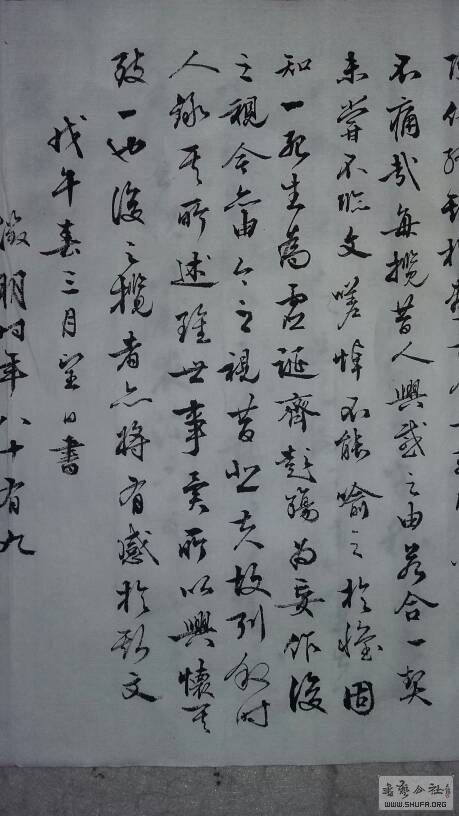 不痛哉每攬昔人興感之由若合一契
未嘗不臨文嗟悼不能喻之於懷固
知一死生為虛誕齊彭殤為妄作後
之視今亦由今之視昔悲夫故列敘時
人錄其所述雖世事異所以興懷其
致一也後之攬者亦將有感於斯文
戊午春三月望日書
徵明時年八十有九
WWW.SHUFA.ORG